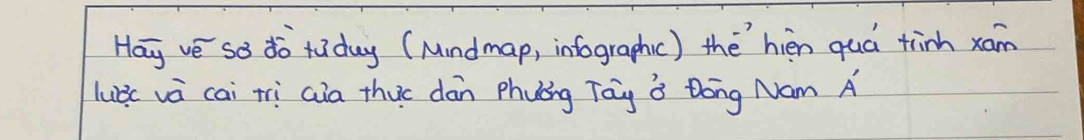 Hãy vẽ sơ đồ tư duy (Mindmap, infographic) thể hiện quá trình xâm
lược và cai trị của thực dân Phương Tây ở Đông Nam Á